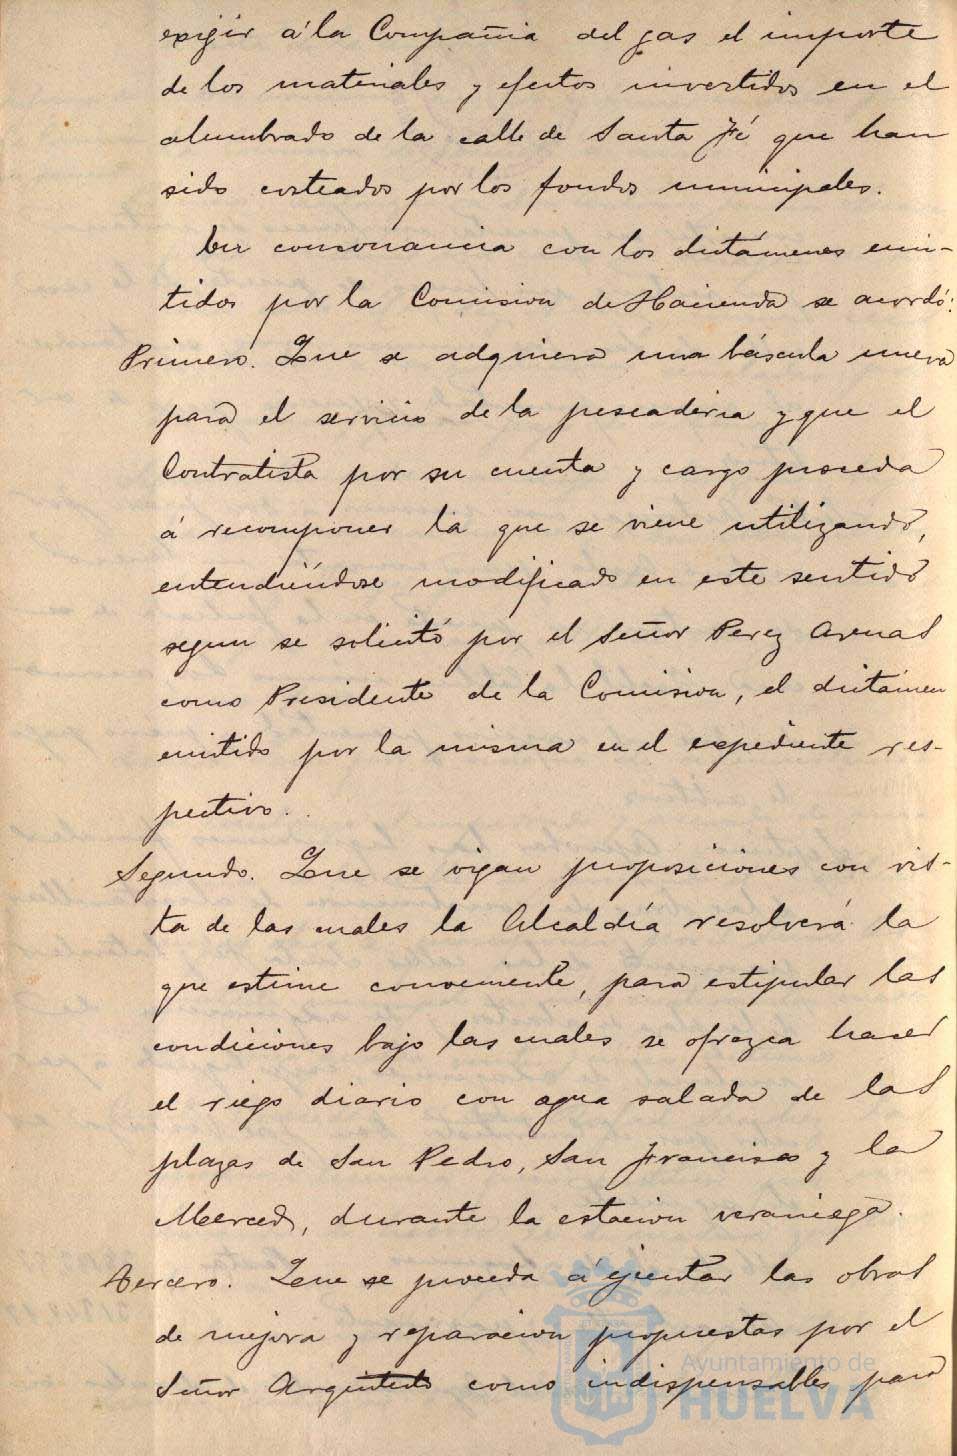 exijir á la Compañia del gas el importe
de los materiales y efectos invertidos en el
alumbrado de la calle de Santa Fé que han
sido costeados por los fondos municipales.
En consonancia con los dictámenes emi-
tidos por la Comision de Hacienda se acordó:
Primero. Que se adquiera una báscula nueva
para el servicio de la pescaderia y que el
Contratista por su cuenta y cargo proceda
á recomponer la que se viene utilizando,
entendiéndose modificado en este sentido
segun se solicitó por el Señor Perez Arenas
como Presidente de la Comision, el dictámen
emitido por la misma en el expediente res-
pectivo.
Segundo. Que se oigan proposiciones con vis-
ta de las cuales la Alcaldía resolverá la
que estime conveniente, para estipular las
condiciones bajo las cuales se ofrezca hacer
el riego diario con agua salada de las
plazas de San Pedro, San Francisco y la
Merced, durante la estacion veraniega.
Tercero. Que se proceda á ejecutar las obras
de mejora y reparacion propuestas por el
Señor Arquitecto como indispensables para
Ayuntamiento de
HUELVA